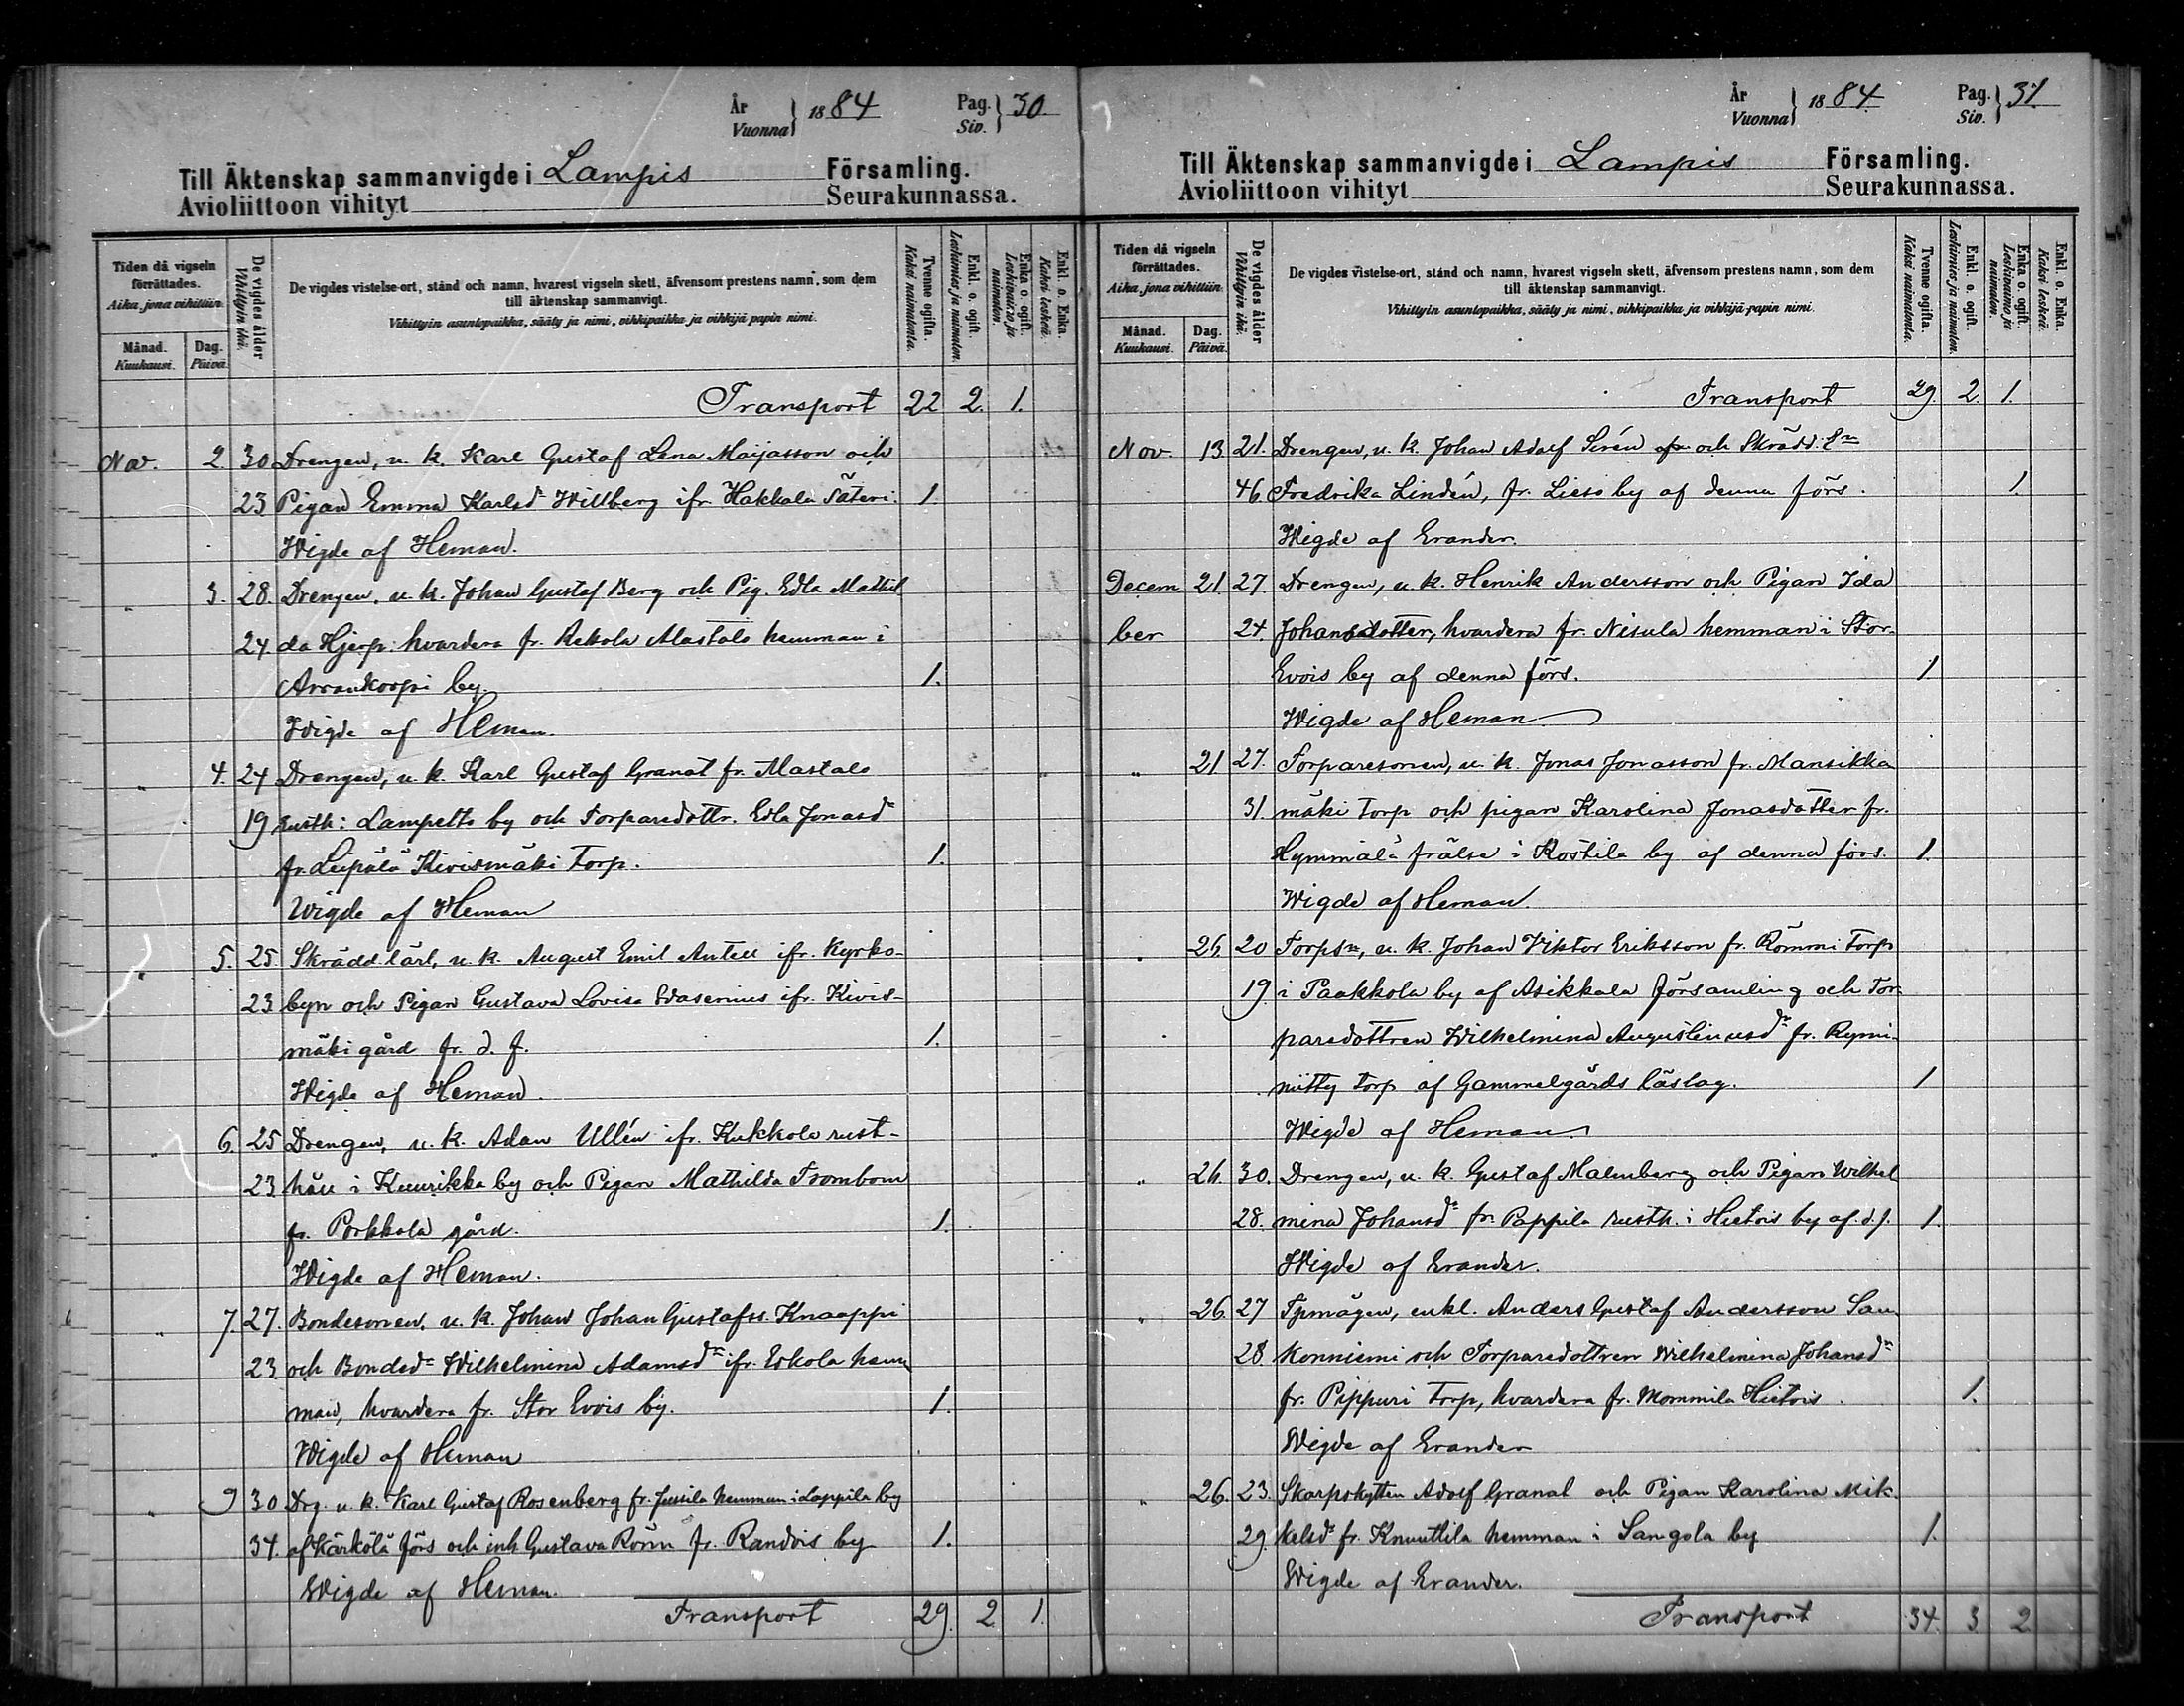 År
Vuonna
1884
Pag.
Siv.
30.
Till Äktenskap sammanvigde i Lampis Församling.
Avioliittoon vihityt Seurakunnassa.
Tiden då vigseln förrättades.
Aika, jona vihittiin.
Månad.
Kuukausi.
Dag.
Päivä.
De vigdes ålder
Vihittyin ikä.
De vigdes vistelse-ort, stånd och namn, hvarest vigseln skett, äfvensom prestens namn, som dem
till äktenskap sammanvigt.
Vihittyin asuntopaikka, sääty ja nimi, vihkipaikka ja vihkijä papin nimi.
Tvenne ogifta.
Kaksi naimatonta.
Enkl. o. ogift.
Leskimies ja naimaton.
Enka o. ogift.
Leskivaimo ja naimaton.
Enkl. o. Enka.
Kaksi leskeä.
Transport 22 2. 1.
Nov. 2 30 Drengen, u. k. Karl Gustaf Lena Maijasson och
23 Pigan Emma Karlsdr Willberg ifr. Hakkala Säteri. 1.
Wigde af Heman.
" 3. 28. Drengen, u. k. Johan Gustaf Berg och Pig. Edla Mathil
24. da Hjerp: hvardera fr. Rekola Alastalo hemman i
Arrankorpi by. 1.
Wigde af Heman.
" 4. 24 Drengen, u. k. Karl Gustaf Granat fr. Alastalo
19 rusth: Lampelto by och Torparedottr. Edla Jonasdr
fr. Leipälä Kivismäki Torp. 1.
Wigde af Heman
" 5. 25. Skrädd. lärl, u. k. August Emil Antell ifr. Kyrko-
23 byn och Pigan Gustava Lovisa Wasenius ifr. Kivis-
mäki gård fr. d. f. 1.
Wigde af Heman.
" 6. 25 Drengen, u. k. Adam Ullén ifr. Kukkola rust-
23 håll i Kuurikka by och Pigan Mathilda Trombom
fr. Porkkola gård. 1.
Wigde af Heman.
" 7. 27. Bondesonen, u. k. Johan Johan Gustafss. Knaappi
23 och Bondedr Wilhelmina Adamsdr ifr. Erkola hem
man, hvardera fr. Stor Evois by. 1.
Wigde af Heman
" 9 30 Drg. u. k. Karl Gustaf Rosenberg fr. Jussila hemman i Lappila by
34. af Kärkölä förs och inh Gustava Rörm fr. Randois by 1.
Wigde af Heman.
Transport 29. 2 1.
År
Vuonna
1884.
Pag.
Siv.
31.
Till Äktenskap sammanvigde i Lampis Församling.
Avioliittoon vihityt Seurakunnassa.
Tiden då vigseln förrättades.
Aika, jona vihittiin.
Månad.
Kuukausi.
Dag.
Päivä.
De vigdes ålder
Vihittyin ikä.
De vigdes vistelse-ort, stånd och namn, hvarest vigseln skett, äfvensom prestens namn, som dem
till äktenskap sammanvigt.
Vihittyin asuntopaikka, sääty ja nimi, vihkipaikka ja vihkijä-papin nimi.
Tvenne ogifta.
Kaksi naimatonta.
Enkl. o. ogift.
Leskimies ja naimaton.
Enka o. ogift.
Leskivaimo ja naimaton.
Enkl. o. Enka.
Kaksi leskeä.
Transport 29. 2. 1.
Nov. 13 21. Drengen, u. k. Johan Adolf Sirén och Skrädd. En
46. Fredrika Lindén, fr. Lieso by af denna förs. 1.
Wigde af Erander.
Decem- 21. 27. Drengen, u. k. Henrik Andersson och Pigan Ida
ber 24. Johansdotter, hvardera fr. Nisula hemman i Stor-
Evois by af denna förs. 1
Wigde af Heman
" 21 27. Torparesonen, u. k. Jonas Jonasson fr. Mansikka
31. mäki torp och pigan Karolina Jonasdotter fr.
Hymmälä frälse i Kostila by af denna förs. 1.
Wigde af Heman.
" 26. 20 Torpsn, u. k. Johan Viktor Eriksson fr. Römmi Torp
19. i Paakkola by af Asikkala församling och Tor-
paredottren Wilhelmina Augustinusdr fr. Rymi-
niitty torp af Gammelgårds läslag. 1
Wigde af Heman
" 26. 30. Drengen, u. k. Gustaf Malmberg och Pigan Wilhel
28. mina Johansdr fr. Pappila rusth. i Hietois by af d. f. 1.
Wigde af Erander.
" 26. 27 Tpmågen, enkl. Anders Gustaf Andersson San
28 konniemi och Torparedottren Wilhelmina Johansdr
fr. Pippuri Torp, hvardera fr. Mommila Hietois. 1.
Wigde af Erander
" 26. 23. Skarpskytten Adolf Granat och Pigan Karolina Mik-
29. kelsdr fr. Knuuttila hemman i Sangola by 1.
Wigde af Erander.
Transport 34. 3. 2